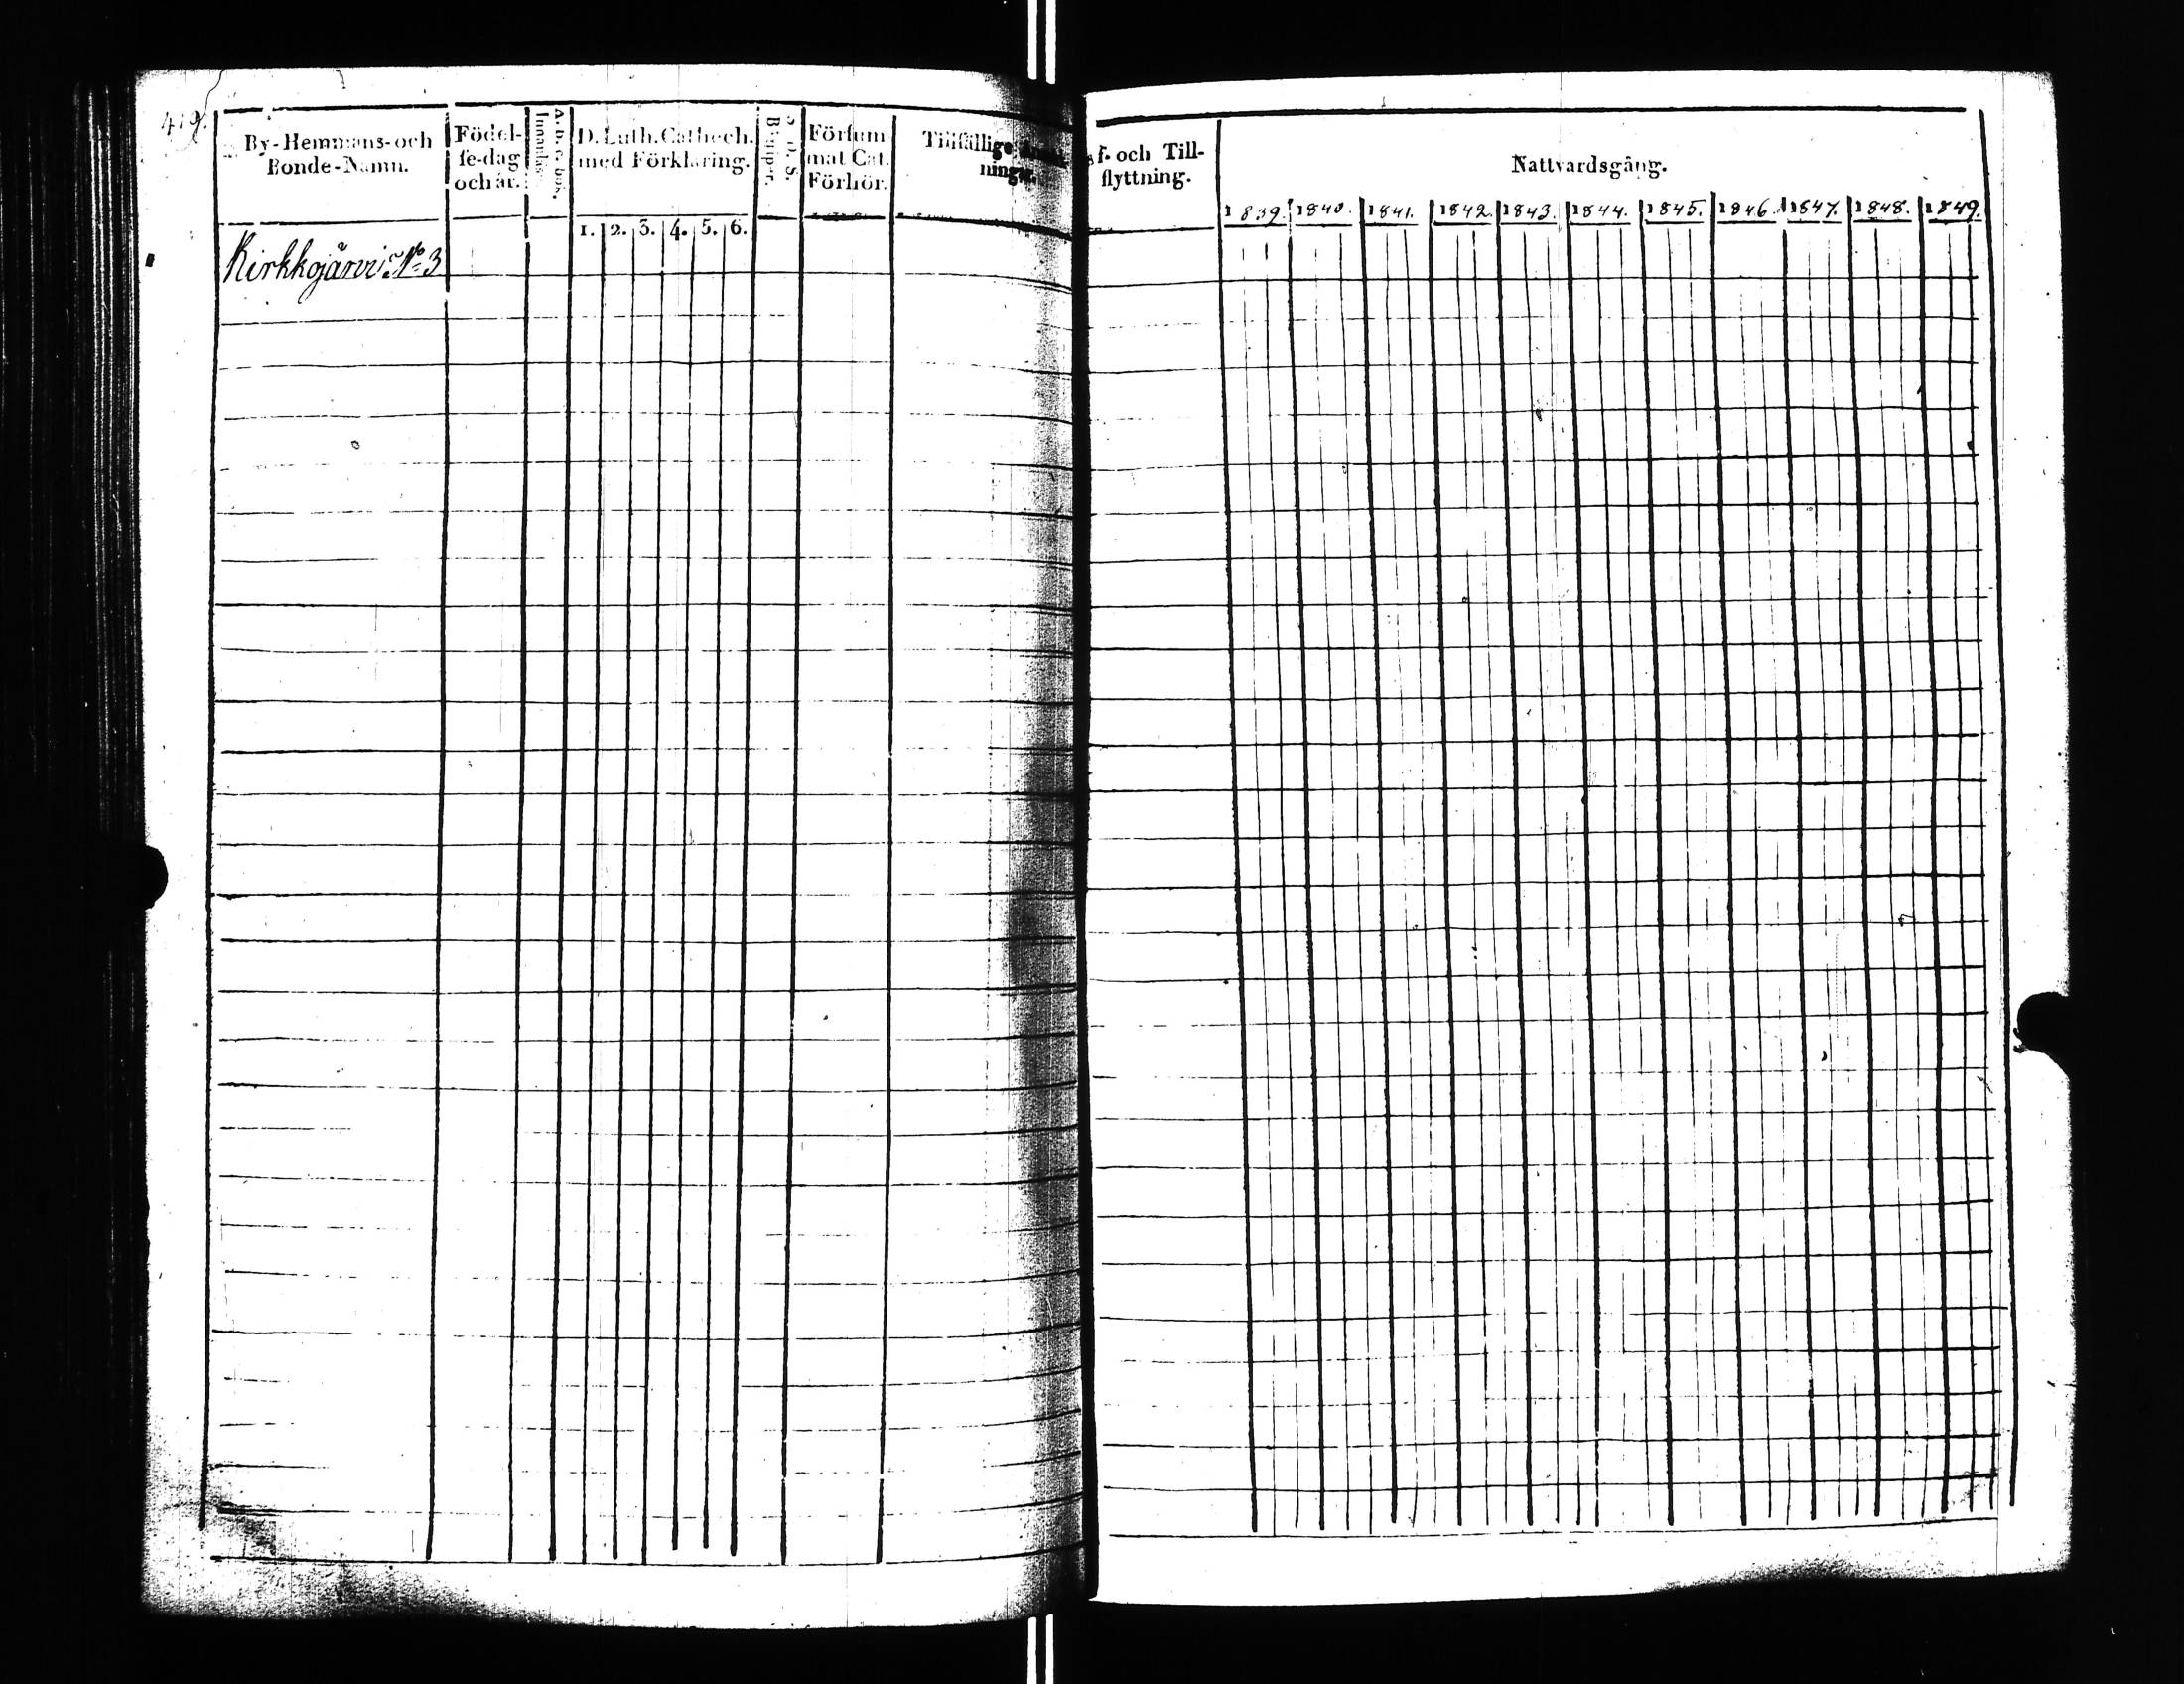 419.
By-Hemmans-och
Bonde-Namn.
Födel-
se-dag
och år.
A. b. c. bok.
Innanläs.
D. Luth. Cathech.
med Förklaring.
1. 2. 3. 4. 5. 6.
D. S.
Försum
mat Cat.
Förhör.
Tillfällige
ningar.
f- och Till-
flyttning.
Nattvardsgång.
1839. 1840. 1841. 1842. 1843. 1844. 1845. 1846. 1847. 1848. 1849.
Kirkkojärvi N:o 3